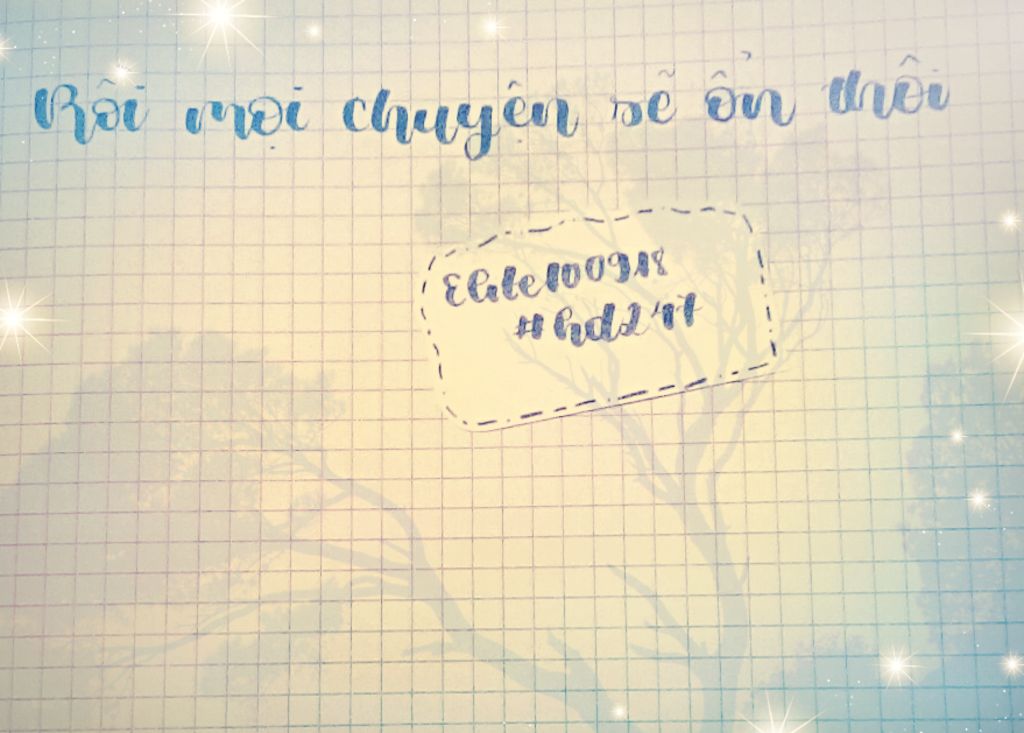 Rồi mọi chuyện sẽ ổn thôi
Elite100918
#hd247